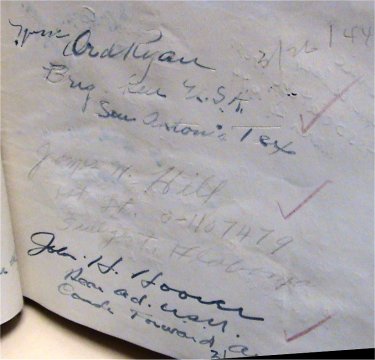 Wm Ord Ryan
Brig Gen U.S.A.
San Antonio Tex
James W. Hill
1st Lt. O-1167479
John H. Hoover
Rear ad. USN.
Comdr Forward